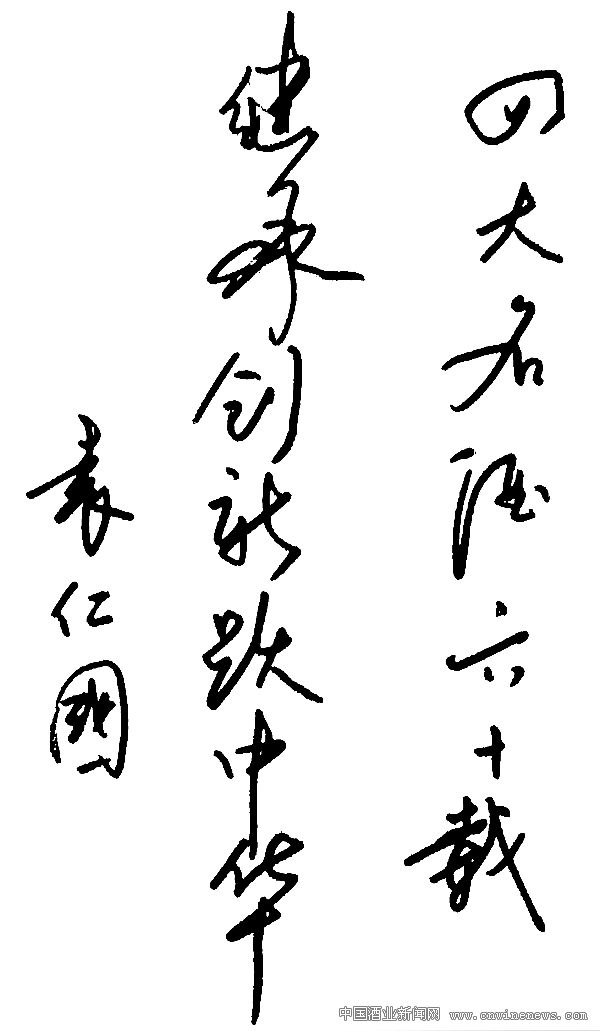 四大名酒六十載
继承创新跃中华
袁仁國
中国酒业新闻网 www.cnwinenews.com